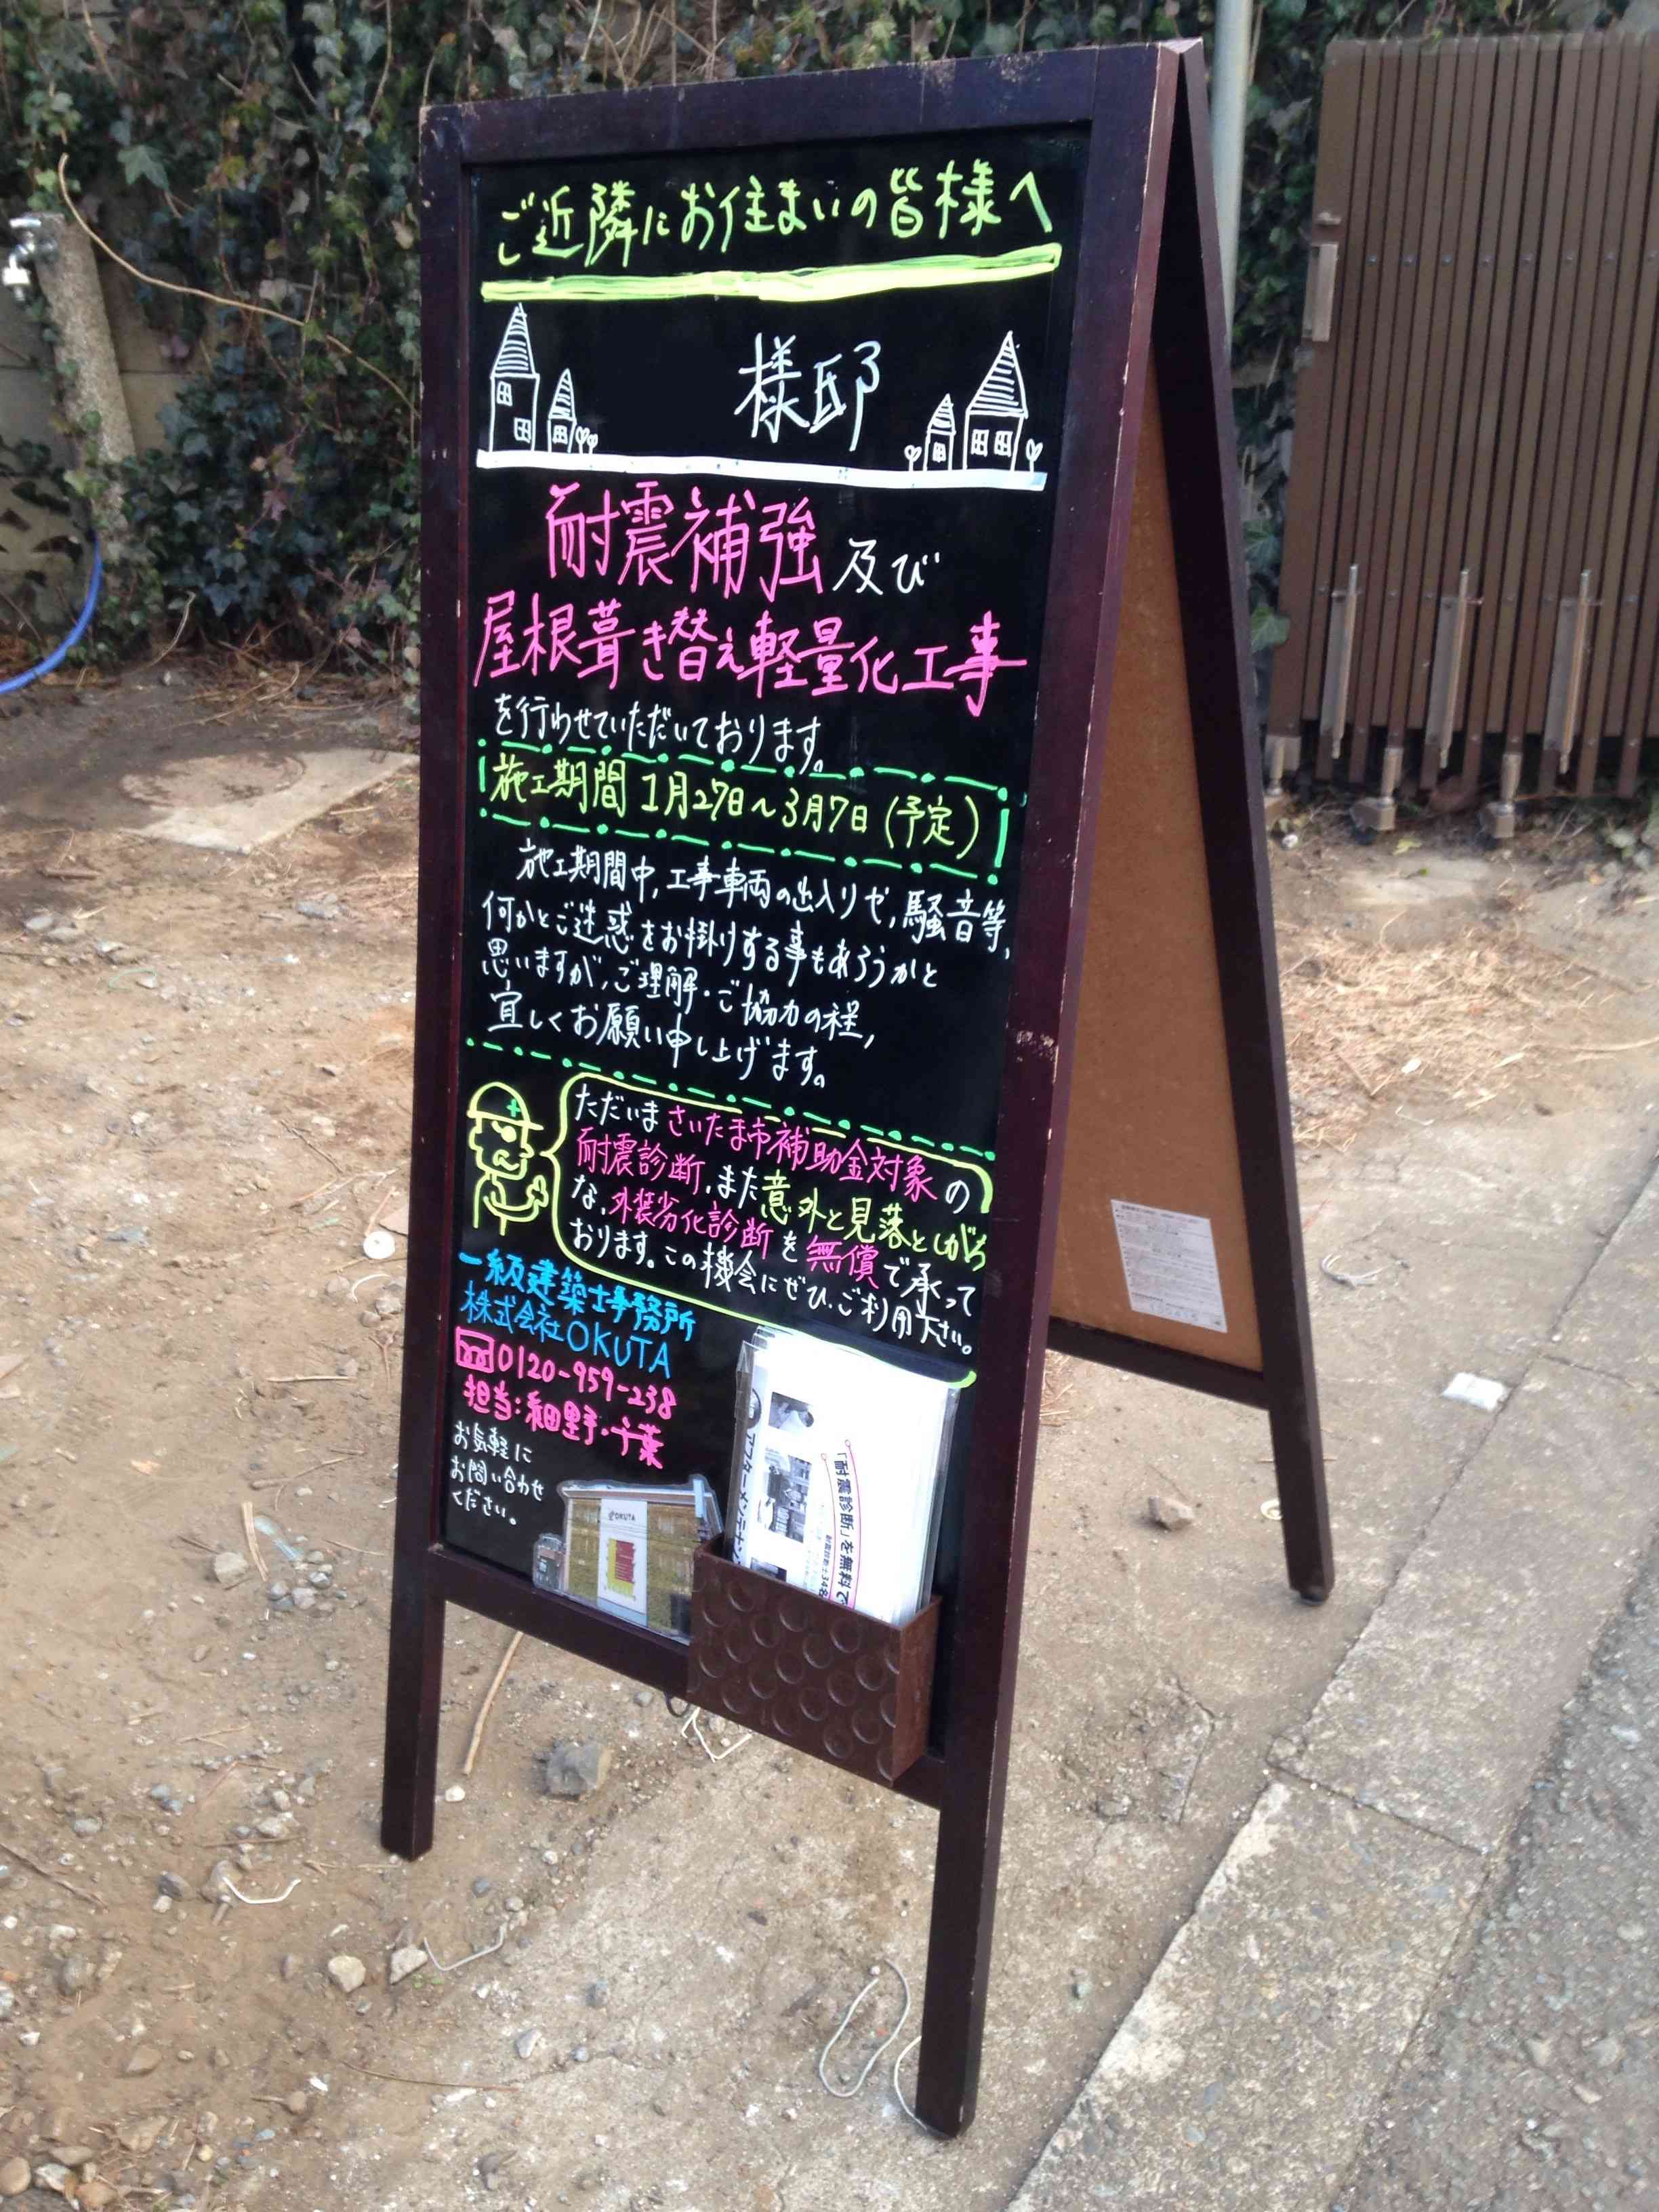 ご近隣にお住まいの皆様へ
様邸
耐震補強及び
屋根葺き替え軽量化工事
を行わせていただいております。
施工期間 1月27日〜3月7日(予定)
施工期間中,工事車両の出入りや,騒音等、
何かとご迷惑をお掛けする事もあろうかと
思いますが,ご理解・ご協力の程,
宜しくお願い申し上げます。
ただいま さいたま市補助金対象の
耐震診断,また意外と見落としがち
な,外装劣化診断を無償で承って
おります。この機会にぜひ,ご利用下さい。
一級建築士事務所
株式会社OKUTA
0120-959-238
担当:細野・千葉
お気軽に
お問い合わせ
ください。
OKUTA
アフターメンテナン
「耐震診断」を無料で